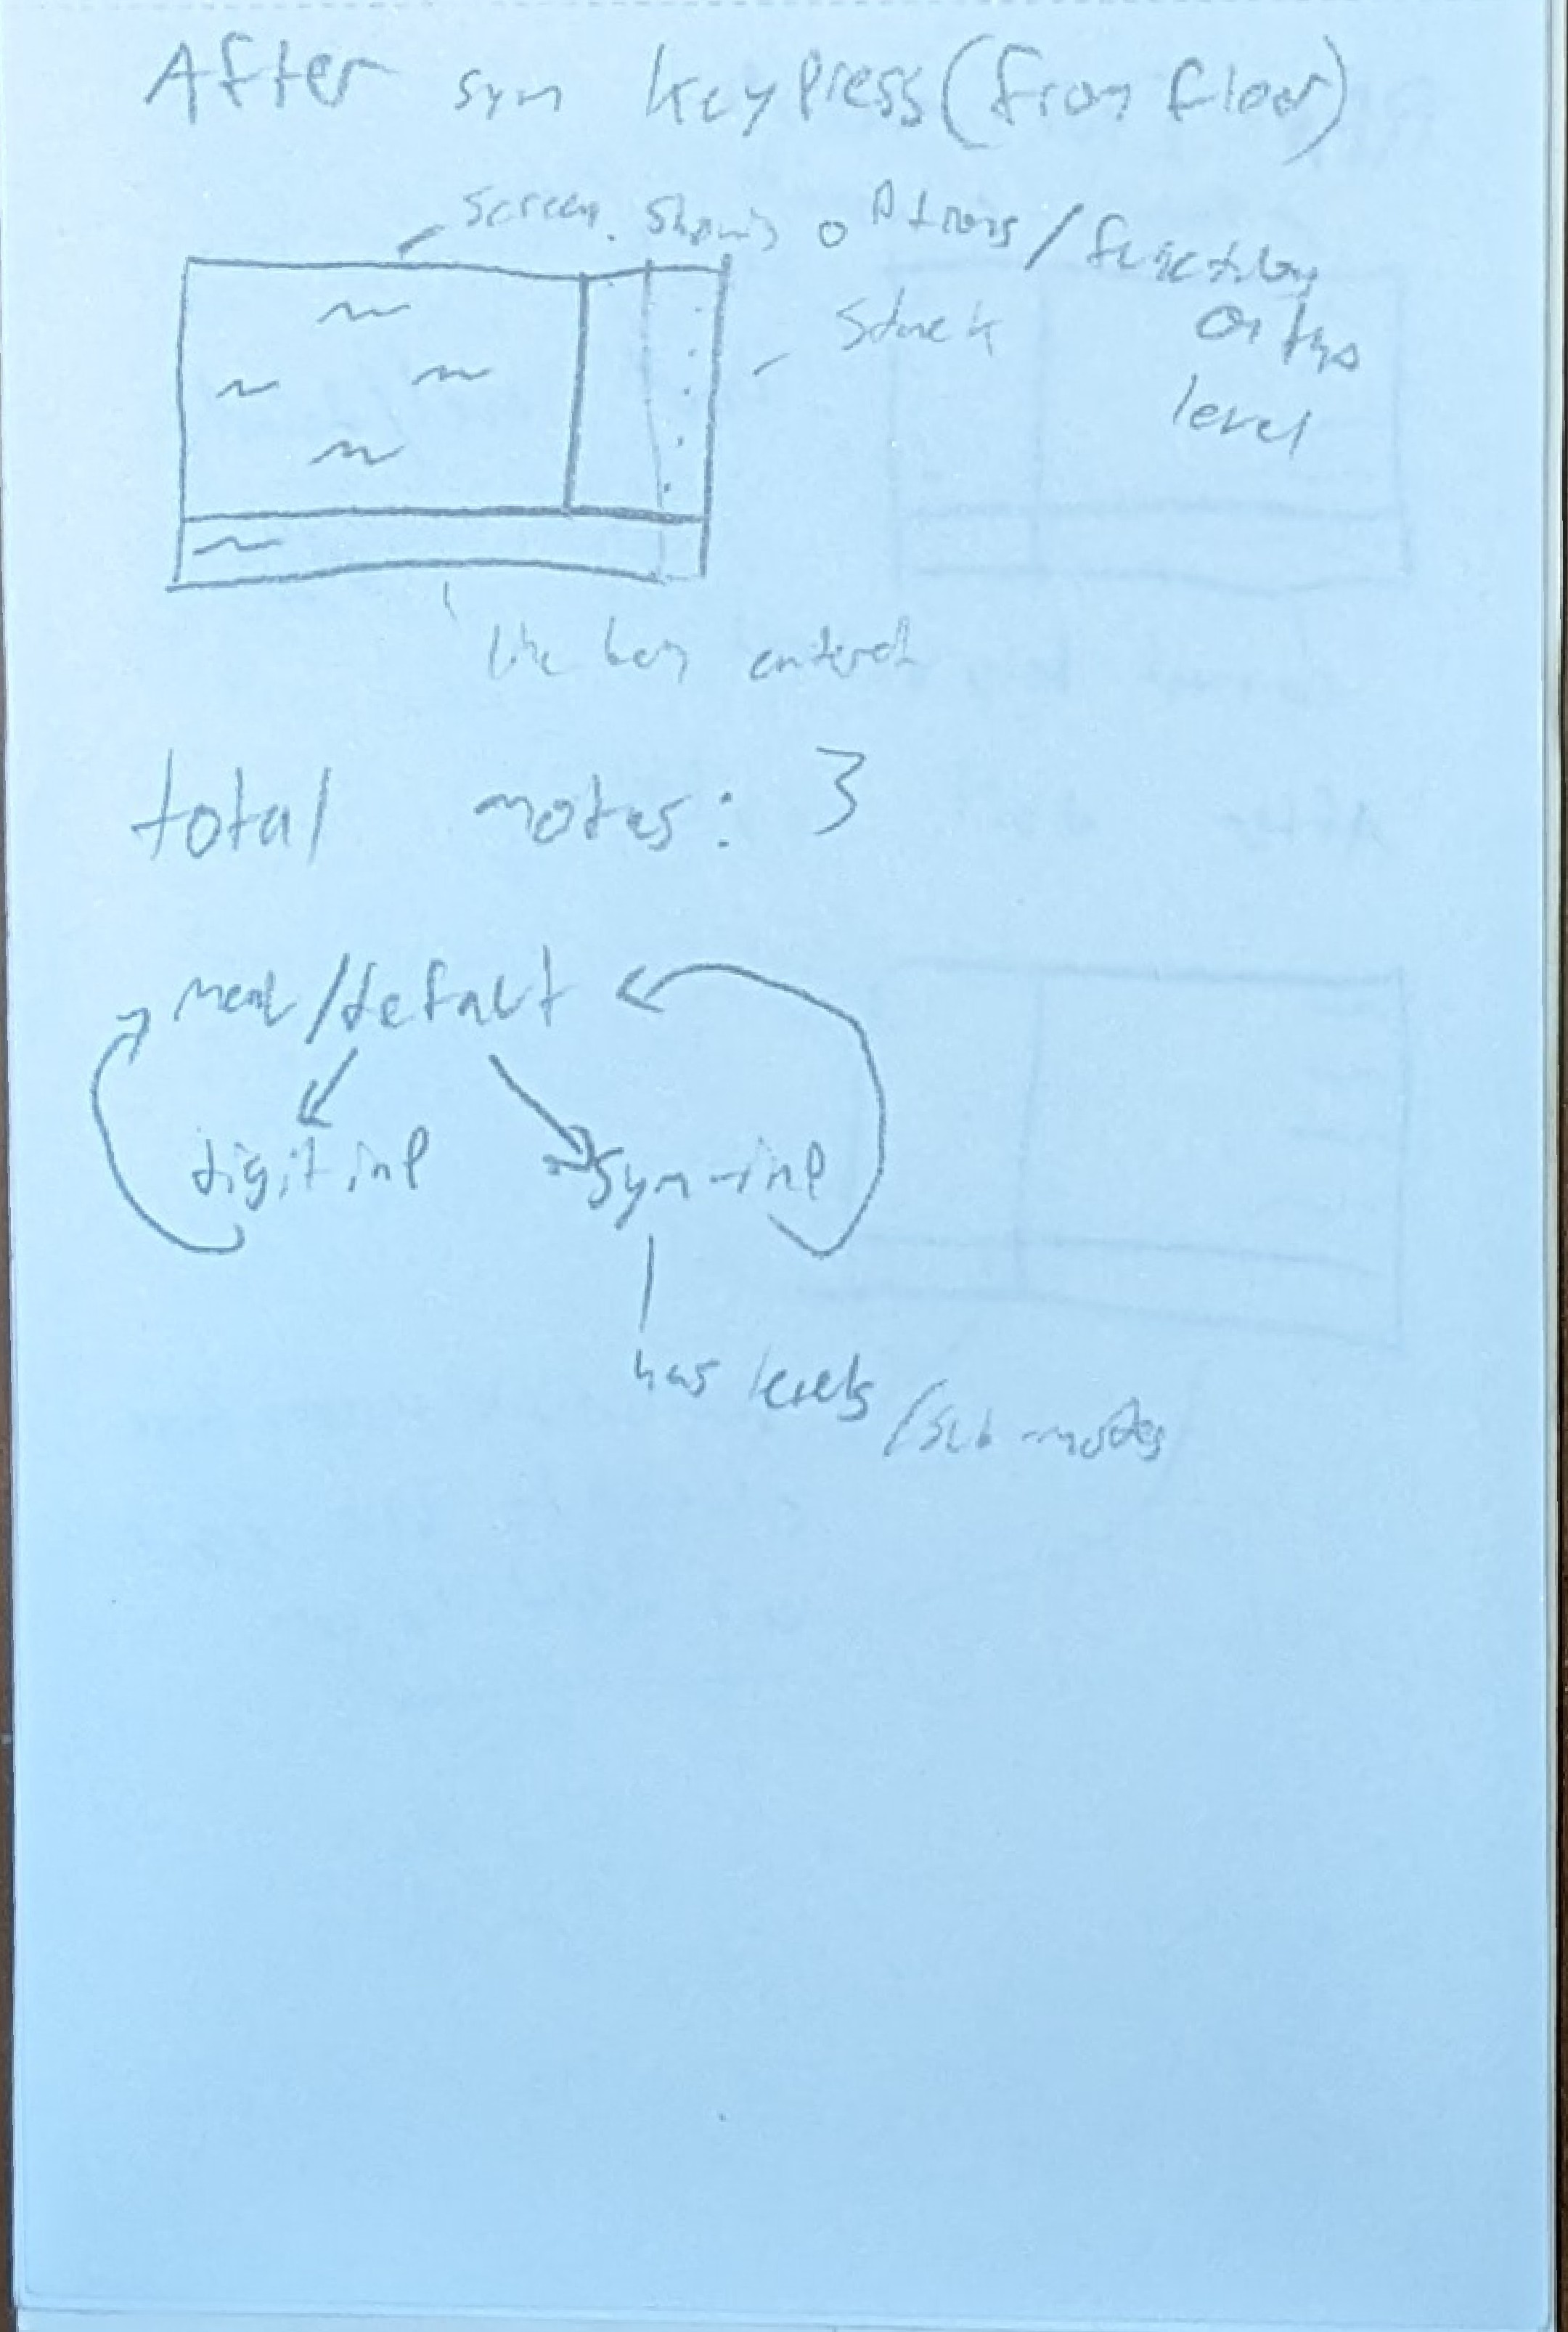 After sym keypress (from floor)
screen. Showing options / functions
on this
level
stack
line being entered
total modes: 3
neut/default
digit inp
sym-inp
has levels
/sub-modes